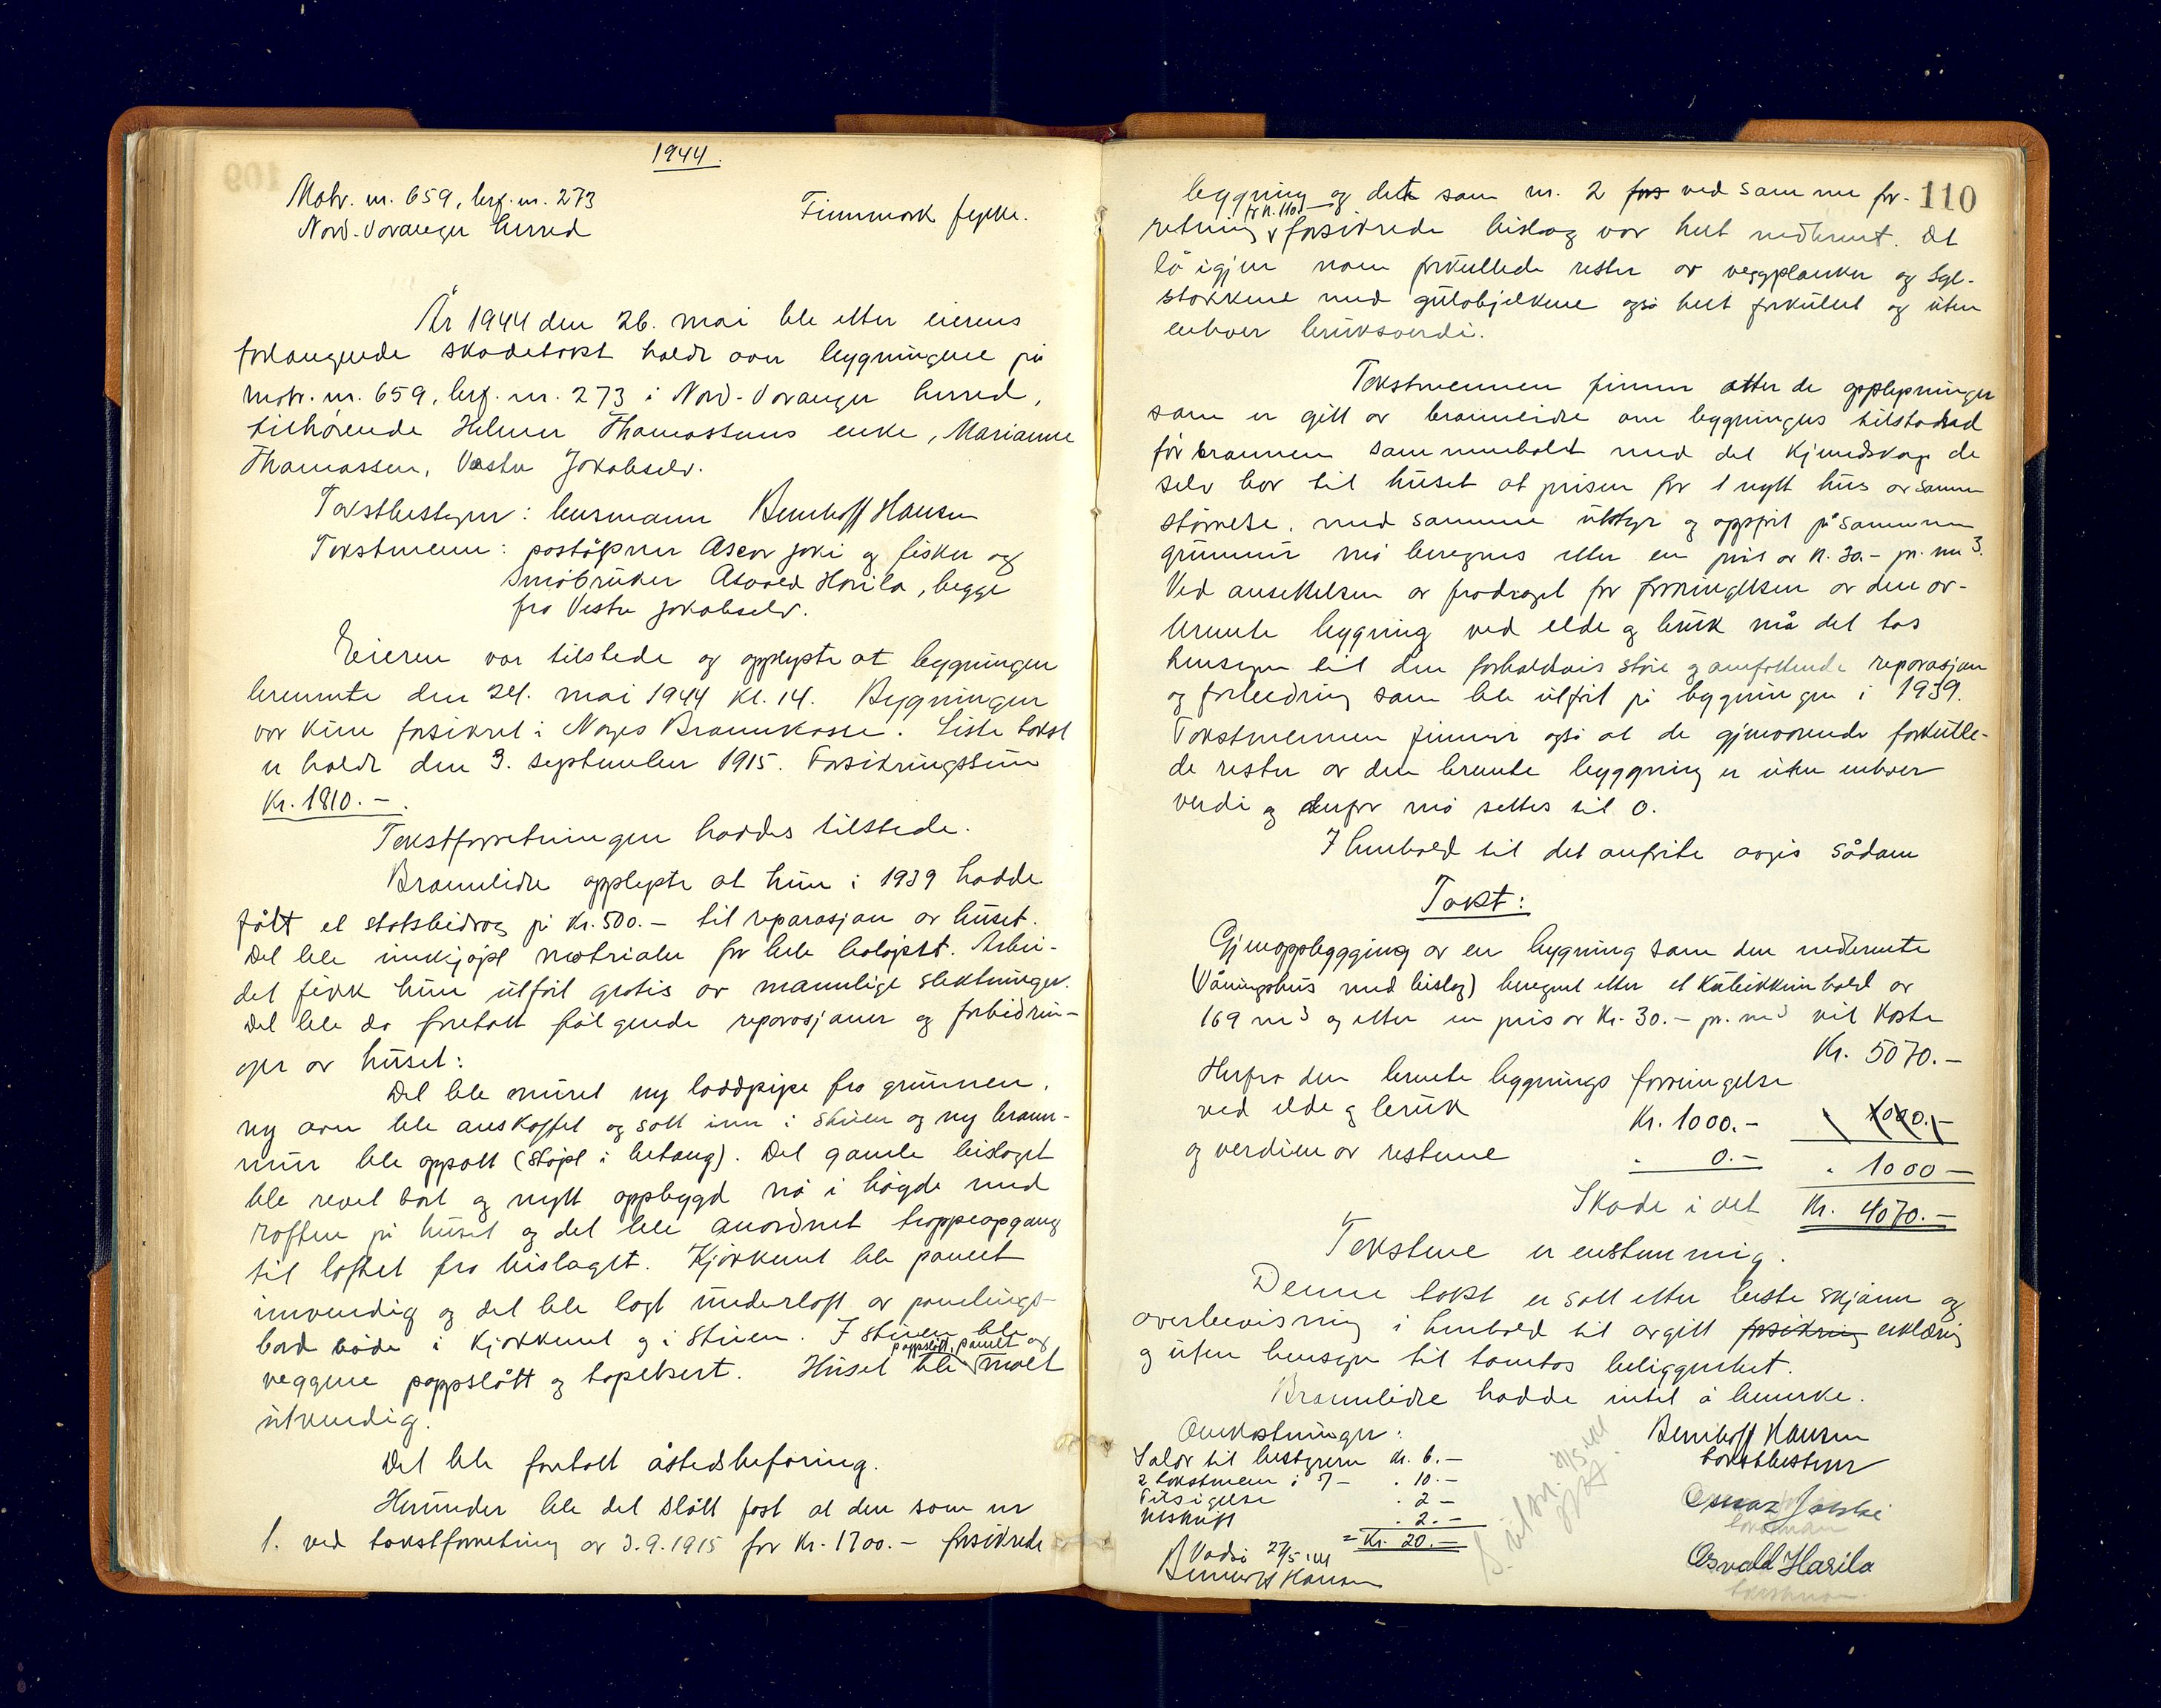 1944.
Matr. nr. 659, brf. nr. 273
Nord-Varanger herred
Finnmark fylke.
År 1944 den 26. mai ble etter eierens
forlangende skadetakst holdt over bygningene på
matr. nr. 659, brf. nr. 273 i Nord-Varanger herred,
tilhørende Helmer Thomassens enke, Marianne
Thomassen, Vestre Jakobselv.
Takstbestyrer: lensmann Bernhoff Hansen
Takstmenn: poståpner Oscar Joki og fisker og
småbruker Osvald Harila, begge
fra Vestre Jakobselv.
Eieren var tilstede og opplyste at bygningen
brennte den 24. mai 1944 kl. 14. Bygningen
var kun forsikret i Norges Brannkasse. Siste takst
er holdt den 3. september 1915. Forsikringssum
Kr. 1810.-
Takstforretningen holdes tilstede.
Brannlidte opplyste at hun i 1939 hadde
fått et statsbidrag på kr. 500.- til reparasjon av huset.
Det ble innkjøpt matrialer for hele beløpet. Arbei-
det fikk hun utført gratis av mannlige slektninger.
Det ble da foretatt følgende reparasjoner og forbedrin-
ger av huset:
Det ble muret ny loddpipe fra grunnen,
ny ovn ble anskaffet og satt inn i stuen og ny brann-
mur ble oppsatt (støpt i betong). Det gamle bislaget
ble revet bort og nytt oppbygd nå i høgde med
røften på huset og det ble anordnet trappeopgang
til loftet fra bislaget. Kjøkkenet ble panelt
innvendig og det ble lagt underloft av panelings-
bord både i kjøkkenet og i stuen. I stuen ble
veggene pappslått og tapetsert. Huset ble pappslått, panelt og malt
utvendig.
Det ble foretatt åstedsbefaring.
Herunder ble det slått fast at den som nr
1. ved takstforretning av 3.9.1915 for kr. 1700.- forsikrede
110
bygning og det som nr. 2 fors ved samme for-
retning for kr. 110.- forsikrede bislag var helt nedbrent. Det
lå igjen noen forkullede rester av veggplanker og syl-
stokkene med gulvbjelkene også helt forkullet og uten
enhver bruksverdi.
Takstmennene finner etter de opplysninger
som er gitt av brannlidte om bygningens tilstand
før brannen sammenholdt med det kjennskap de
selv har til huset at prisen for 1 nytt hus av samme
størrelse, med samme utstyr og oppført på samme
grunnmur må beregnes etter en pris av kr. 30.- pr. m³.
Ved ansettelsen av fradraget for forringelsen av den av-
brente bygning ved elde og bruk må det tas
hensyn til den forholdsvis store og omfattende reparasjon
og forbedring som ble utført på bygningen i 1939.
Takstmennene finner også at de gjenværende forkulle-
de rester av den brente byggning er uten enhver
verdi og derfor må settes til 0.
I henhold til det anførte avgis sådan
Takst:
Gjenoppbyggging av en bygning som den nedbrente
(Våningshus med bislag) beregnet etter et kubikkinnhold av
169 m³ og etter en pris av kr. 30.- pr. m³ vil koste
Kr. 5070.-
Herfra den brente bygnings forringelse
ved elde og bruk Kr. 1000.- 1000.-
og verdien av restene " 0.- " 1000-
Skade i alt Kr. 4070.-
Takstene er enstemmig.
Denne takst er satt etter beste skjønn og
overbevisning i henhold til avgitt forsikring erklæring
og uten hensyn til tomtas beliggenhet.
Brannlidte hadde intet å bemerke.
Omkostninger:
Salær til bestyreren kr. 6.-
2 takstmenn i 5- " 10.-
Tilsigelse " 2-
Utskrift " 2.-
= Kr. 20.-
Vadsø 27/5 1944
Bernhoff Hansen
Bernhoff Hansen
takstbestyrer
Oscar Jokki
takstmann
Osvald Harila
takstmann